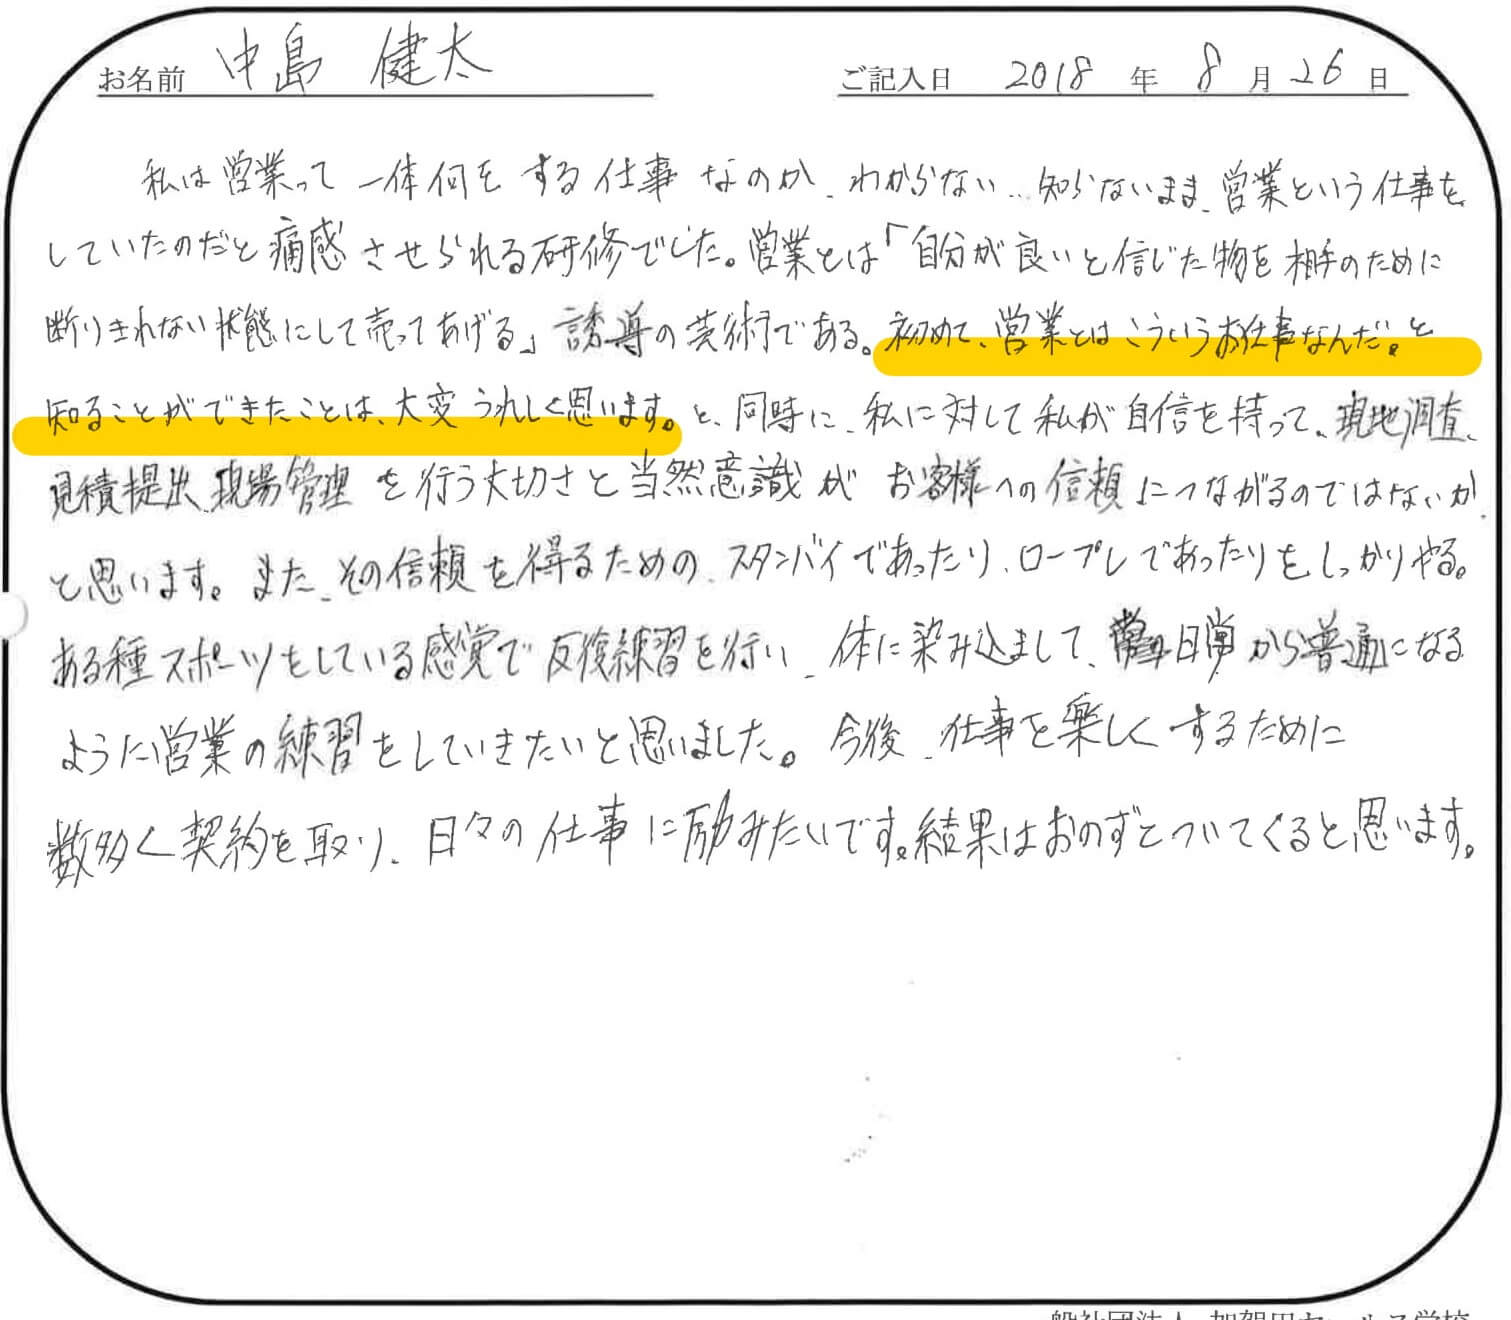 お名前 中島 健太 ご記入日 2018 年 8 月 26 日
私は営業って一体何をする仕事なのか、わからない…知らないまま、営業という仕事を
していたのだと痛感させられる研修でした。営業とは「自分が良いと信じた物を相手のために
断りきれない状態にして売ってあげる」誘導の芸術である。初めて、営業とはこういうお仕事なんだ。と
知ることができたことは、大変うれしく思います。と、同時に、私に対して私が自信を持って、現地調査、
見積提出、現場管理を行う大切さと当然意識がお客様への信頼につながるのではないか
と思います。また、その信頼を得るための、スタンバイであったり、ロープレであったりをしっかりやる。
ある種スポーツをしている感覚で反復練習を行い、体に染み込まして、日常から普通になる
ように営業の練習をしていきたいと思いました。今後、仕事を楽しくするために
数多く契約を取り、日々の仕事に励みたいです。結果はおのずとついてくると思います。
一般社団法人 加賀田セールス学校